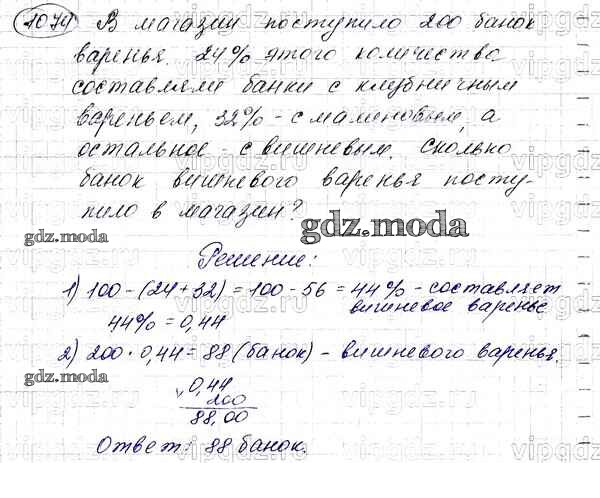 1074 В магазин поступило 200 банок
варенья. 24% этого количества
составляли банки с клубничным
вареньем, 32% - с малиновым, а
остальное - с вишневым. Сколько
банок вишневого варенья посту-
пило в магазин?
gdz.moda
gdz.moda
Решение:
1) 100 - (24 + 32) = 100 - 56 = 44% - составляет
вишневое варенье
44% = 0,44
2) 200 · 0,44 = 88 (банок) - вишневого варенья.
gdz.moda
0,44
200
88,00
Ответ: 88 банок.